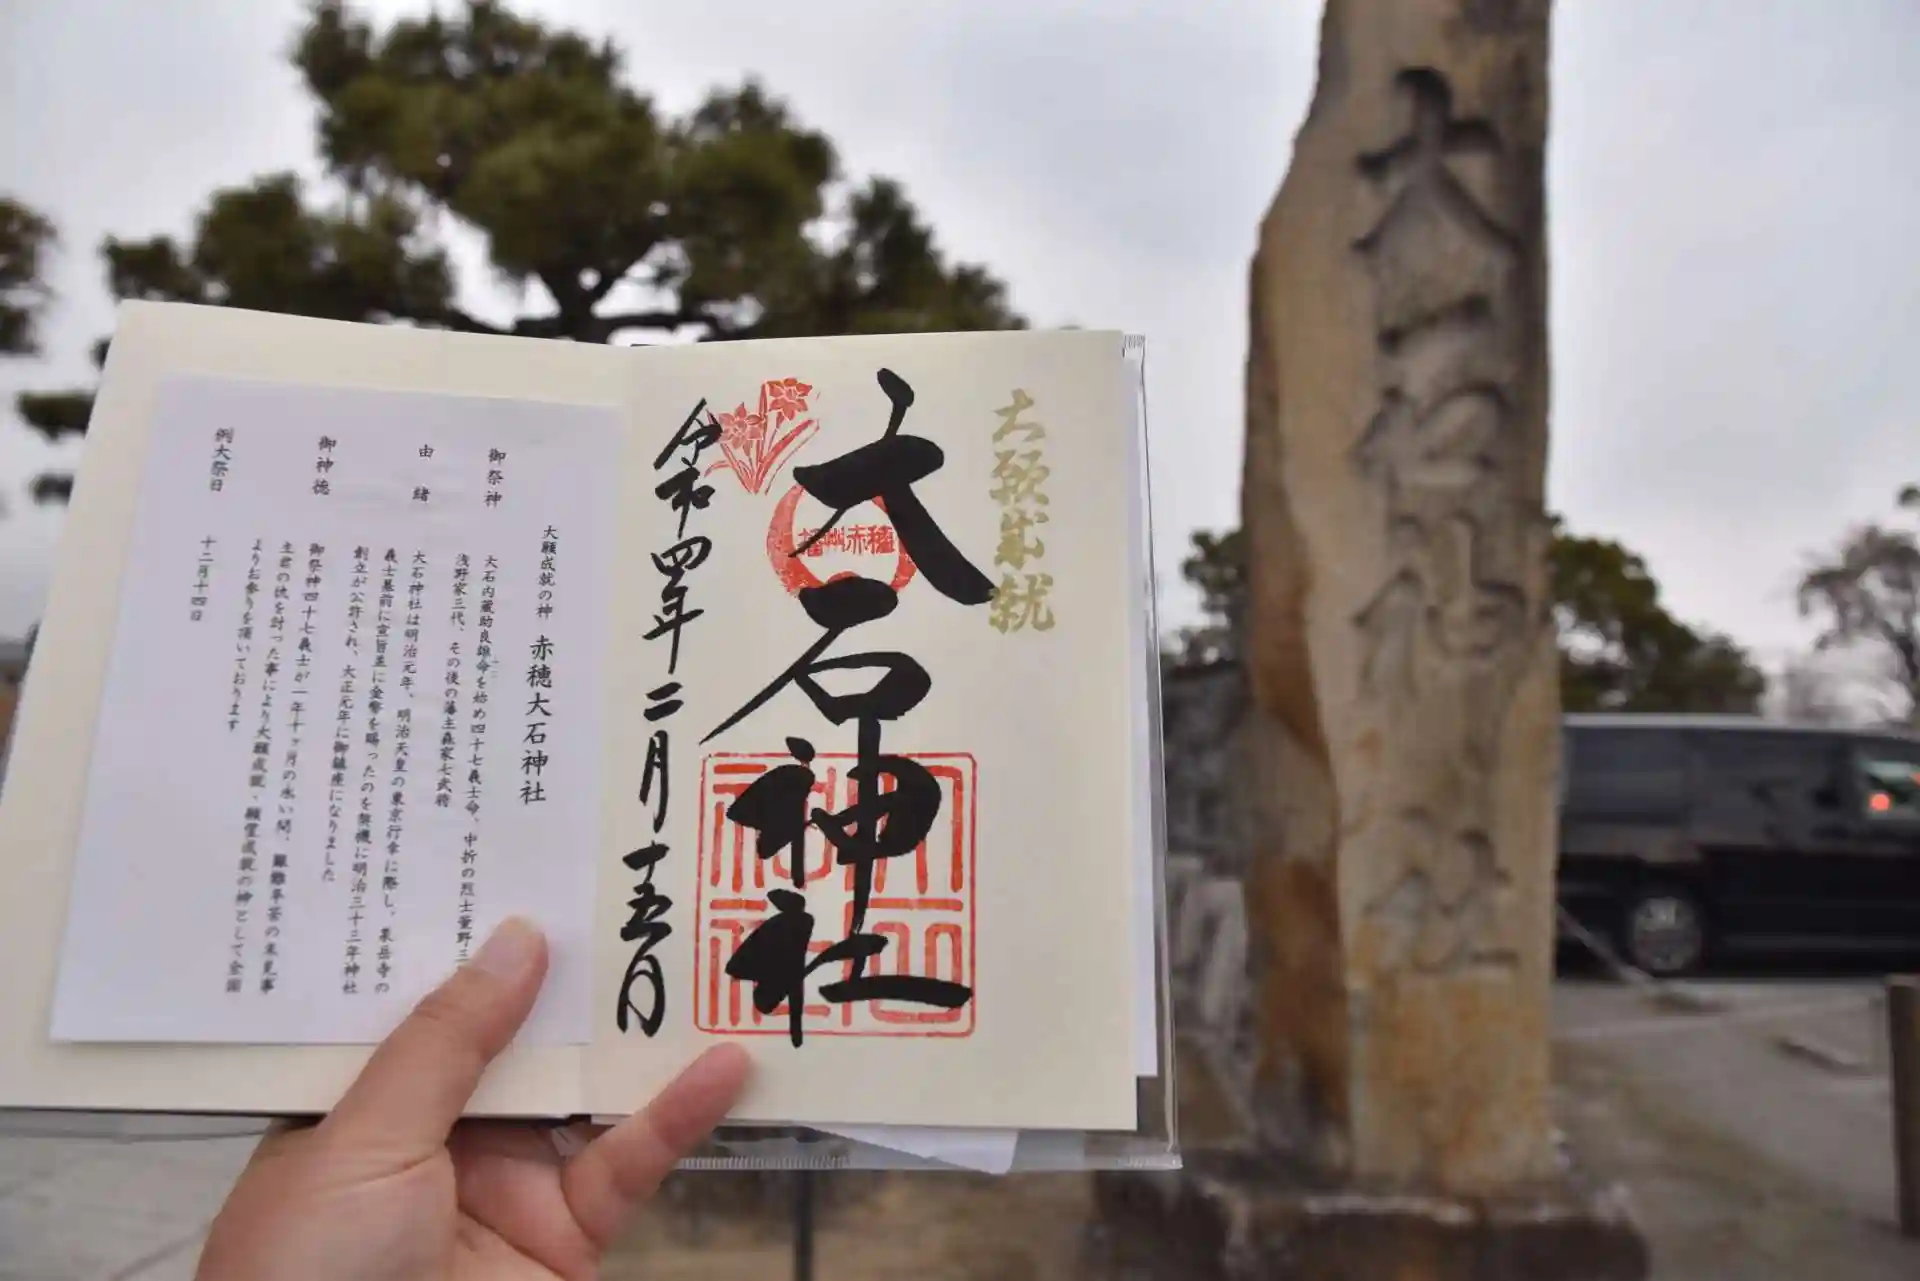 大石神社
大願成就
播州赤穂
大石神社
令和四年二月十五日
大石神社
大願成就の神　赤穂大石神社
御祭神　大石内蔵助良雄命を始め四十七義士命、中折の烈士萱野三
浅野家三代、その後の藩主森家七武将
由緒　大石神社は明治元年、明治天皇の東京行幸に際し、泉岳寺の
義士墓前に宣旨並に金幣を賜ったのを契機に明治三十三年神社
創立が公許され、大正元年に御鎮座になりました
御神徳　御祭神四十七義士が一年十ヶ月の永い間、艱難辛苦の末見事
主君の仇を討った事により大願成就、願望成就の神として全国
よりお参りを頂いております
例大祭日　十二月十四日